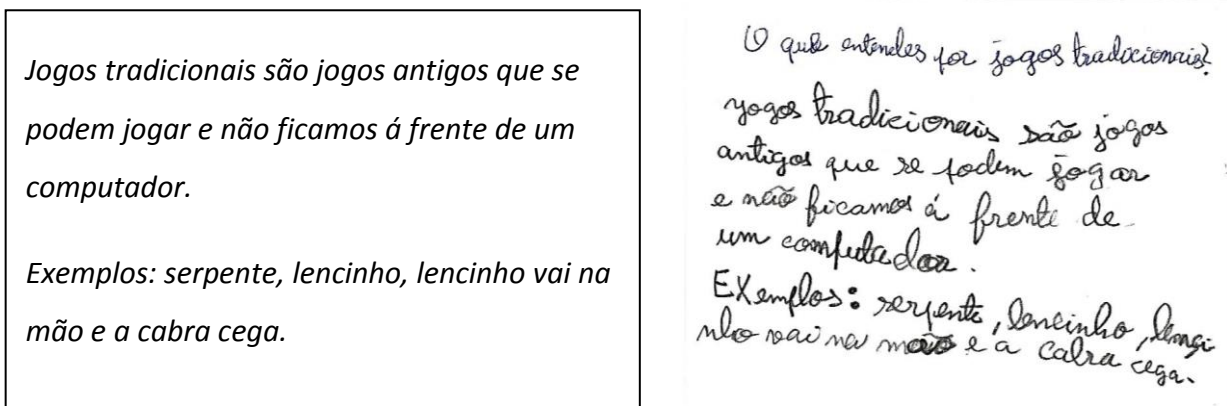 Jogos tradicionais são jogos antigos que se
podem jogar e não ficamos á frente de um
computador.
Exemplos: serpente, lencinho, lencinho vai na
mão e a cabra cega.
O que entendes por jogos tradicionais?
Jogos tradicionais são jogos
antigos que se podem jogar
e não ficamos á frente de
um computador.
EXemplos: serpente, lencinho, lenci
nho vai na mão e a cabra cega.